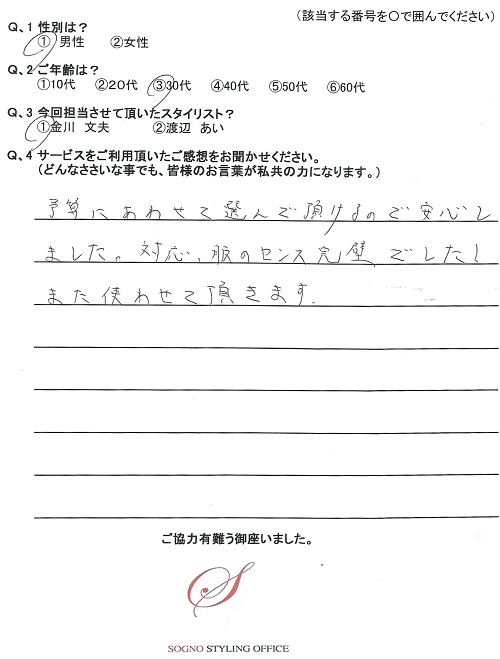 (該当する番号を〇で囲んでください)
Q、1 性別は?
①男性 ②女性
Q、2 ご年齢は?
①10代 ②20代 ③30代 ④40代 ⑤50代 ⑥60代
Q、3 今回担当させて頂いたスタイリスト?
①金川 文夫 ②渡辺 あい
Q、4 サービスをご利用頂いたご感想をお聞かせください。
(どんなささいな事でも、皆様のお言葉が私共の力になります。)
予算にあわせて選んで頂けるので安心し
ました。対応、服のセンス完璧でした!
また使わせて頂きます.
ご協力有難う御座いました。
S
SOGNO STYLING OFFICE